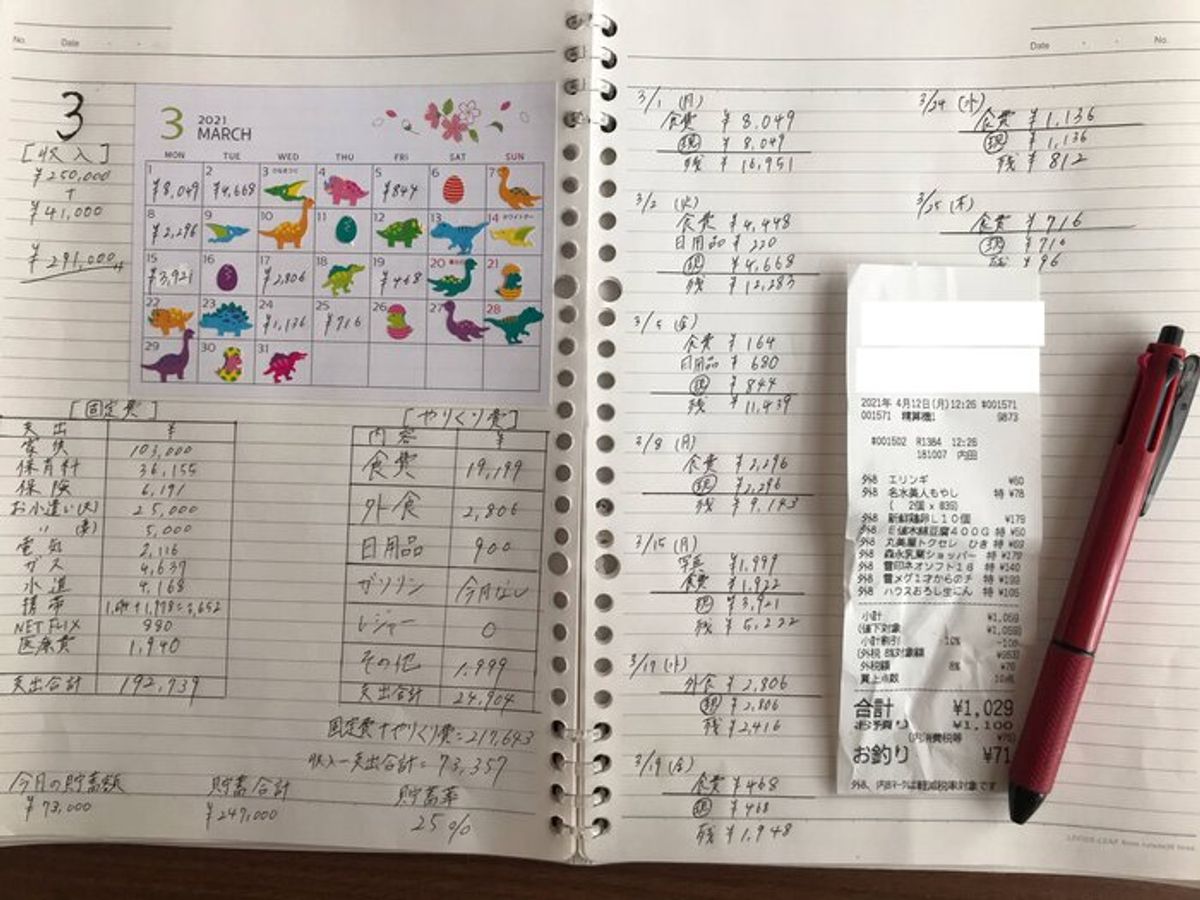 No.
Date
3
[収入]
¥250,000
+
¥41,000
¥291,000
3 2021
MARCH
MON TUE WED THU FRI SAT SUN
1 2 3 4 5 6 7
¥8,049 ¥4,668 ¥844
8 9 10 11 12 13 14
¥2,296
15 16 17 18 19 20 21
¥3,921 ¥2,806 ¥468
22 23 24 25 26 27 28
¥1,136 ¥716
29 30 31
[固定費]
支出 ¥
家賃 103,000
保育料 36,155
保険 6,191
お小遣い(夫) 25,000
〃 5,000
電気 2,116
ガス 4,637
水道 4,168
携帯
NETFLIX 990
医療費 1,940
支出合計 192,739
[やりくり費]
内容 ¥
食費 19,199
外食 2,806
日用品 900
ガソリン 今月なし
レジャー 0
その他 1,999
支出合計 24,904
固定費+やりくり費=217,643
収入-支出合計=73,357
今月の貯蓄額
¥73,000
貯蓄合計
¥247,000
貯蓄率
25%
3/1 (月)
食費 ¥8,049
現 ¥8,049
残 ¥16,951
3/2 (火)
食費 ¥4,448
日用品 ¥220
現 ¥4,668
残 ¥12,283
3/5 (金)
食費 ¥164
日用品 ¥680
現 ¥844
残 ¥11,439
3/8 (月)
食費 ¥2,296
現 ¥2,296
残 ¥9,143
3/15 (月)
写真 ¥1,999
食費 ¥1,922
現 ¥3,921
残 ¥5,222
3/17 (水)
外食 ¥2,806
現 ¥2,806
残 ¥2,416
3/19 (金)
食費 ¥468
現 ¥468
残 ¥1,948
Date
No.
3/24 (水)
食費 ¥1,136
現 ¥1,136
残 ¥812
3/25 (木)
食費 ¥716
現 ¥716
残 ¥96
2021年 4月12日(月)12:26 #001571
001571 精算機1 9873
#001502 R1384 12:26
181007 内田
外8 エリンギ ¥60
外8 名水美人もやし 特 ¥78
外8 新鮮鶏卵L10個 ¥179
豆腐400G 特 ¥50
外8 丸美屋トクセレ ひき 特 ¥69
外8 森永乳業ショッパー 特 ¥179
外8 雪印ネオソフト16 特 ¥140
外8 雪メグ1才からのチ 特 ¥199
外8 ハウスおろし生にん 特 ¥105
小計 ¥1,059
(値下対象 ¥1,059)
小計割引 10% -106
(外税 8%対象額 ¥953)
外税額 8% ¥76
買上点数 10点
合計 ¥1,029
お預り ¥1,100
(内消費税等 ¥76)
お釣り ¥71
外8、内8マークは軽減税率対象です